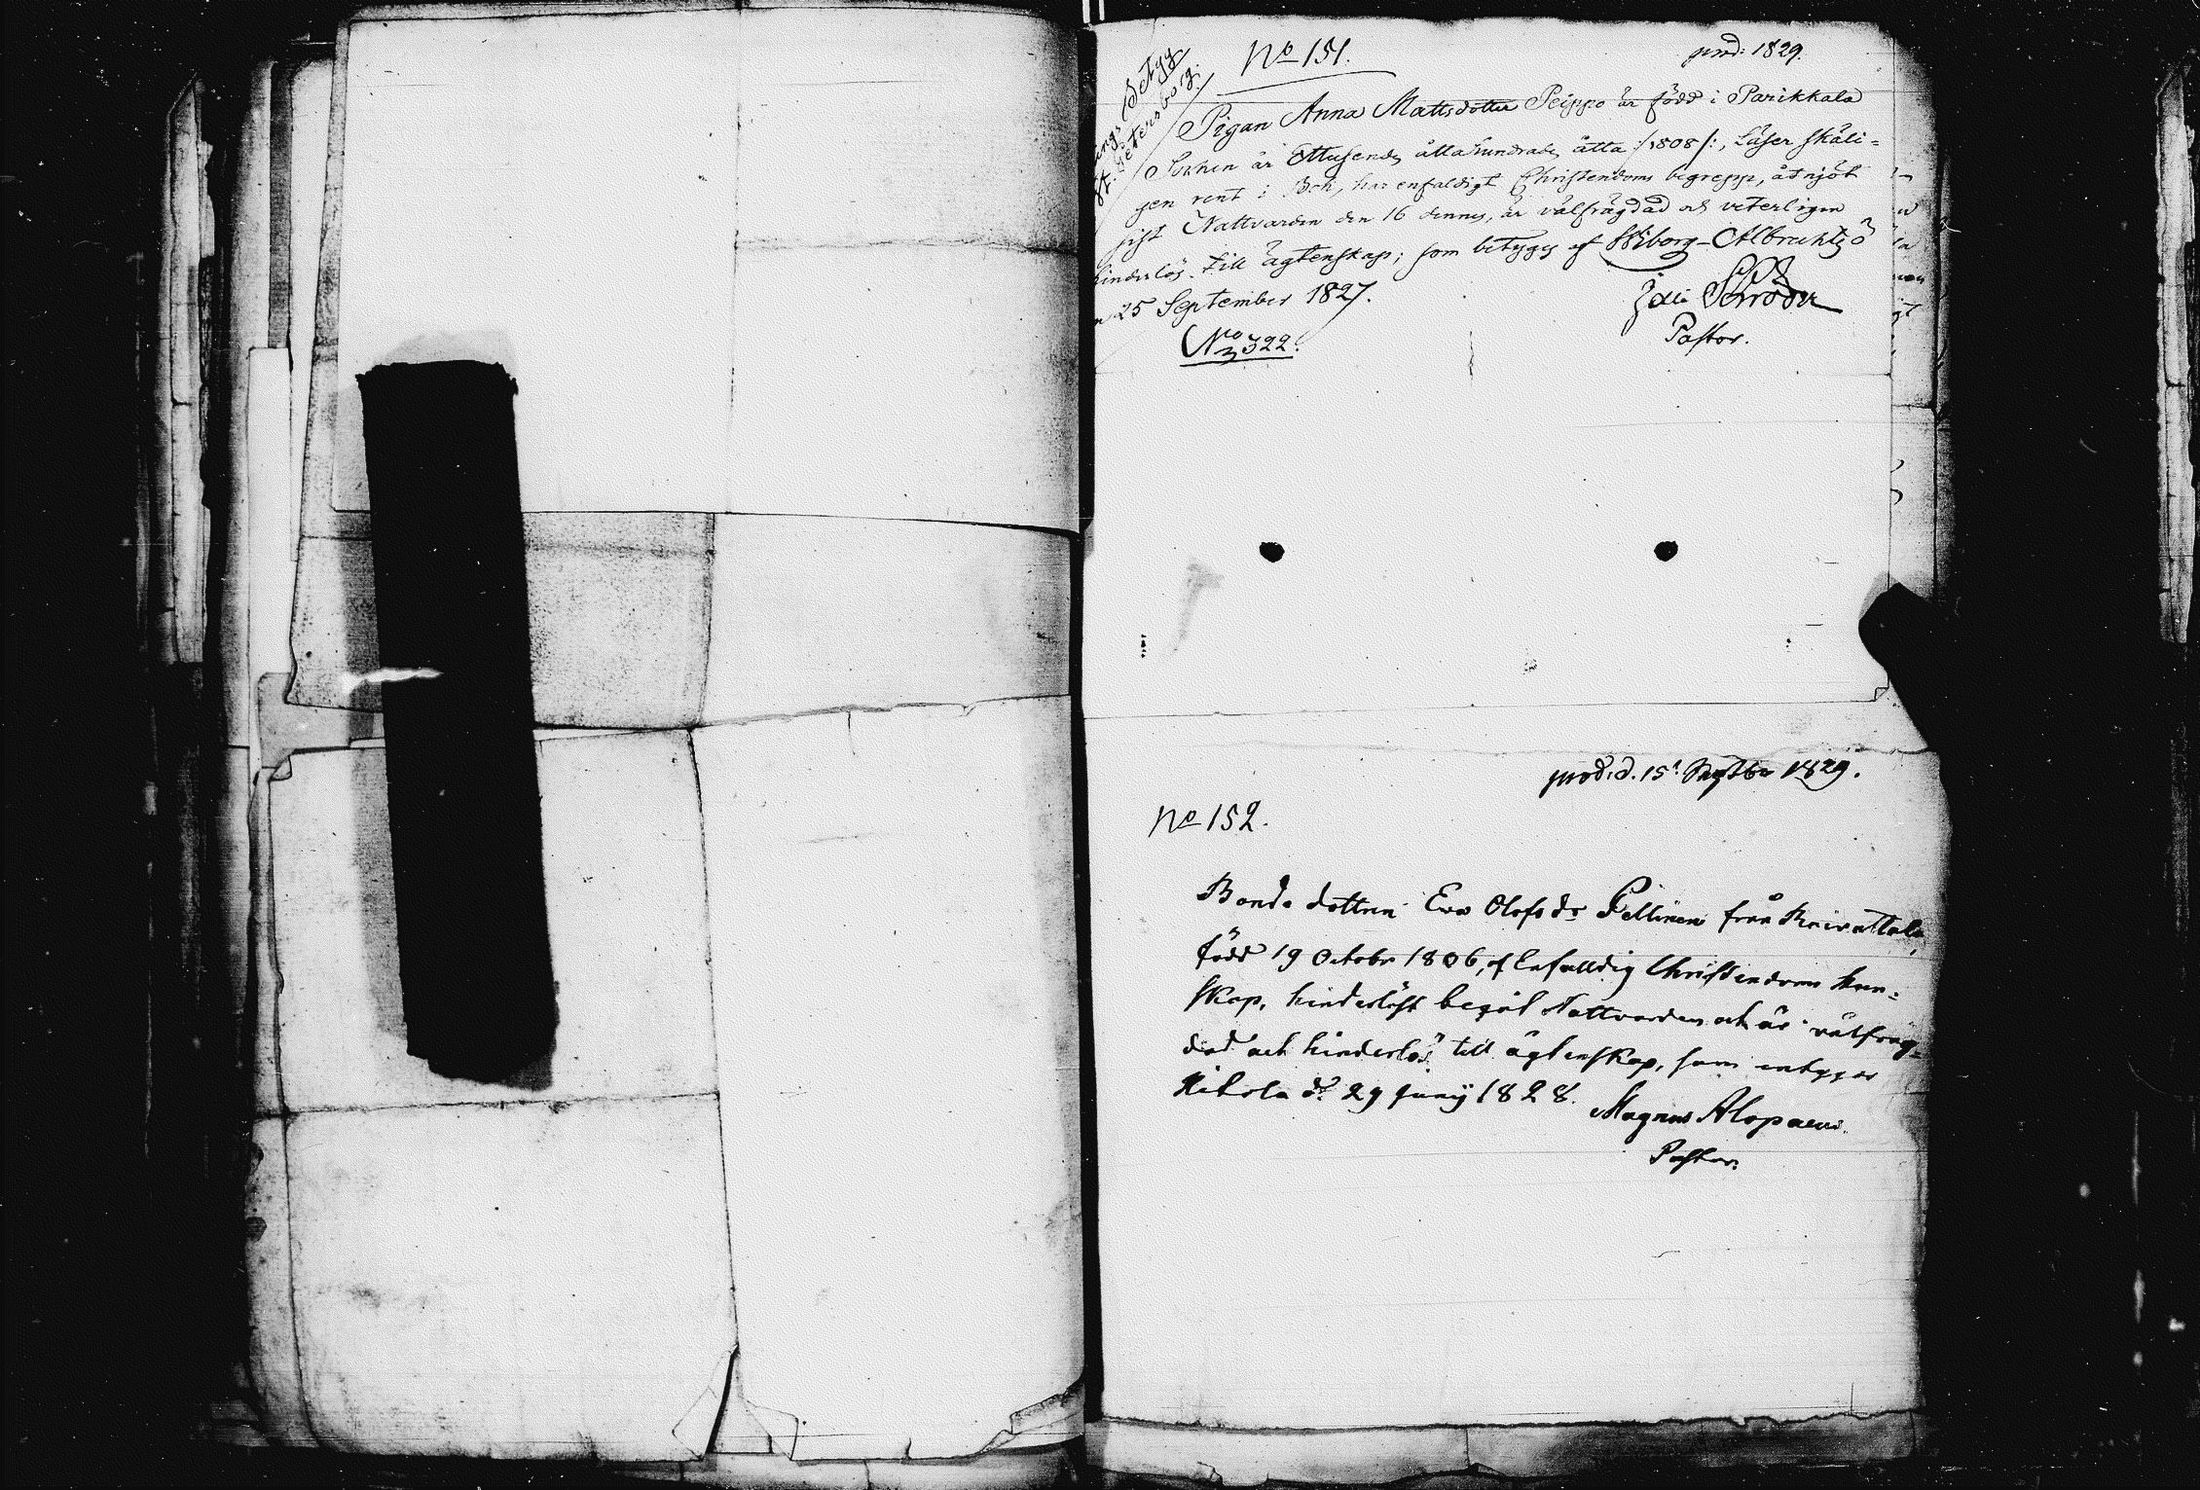 No 151.
prod: 1829.
Betyg
St. Petersborg.
Pigan Anna Mattsdotter Peippo är född i Parikkala
Sochn år Ettusende åttahundrade åtta /:1808:/, Läser skäli-
gen rent i Bok, har enfaldigt Christendoms begrepp, åtnjöt
sist Nattvarden den 16 dennes, är välfrägdad och veterligen
hinderlös till ägtenskap; som betygas af Wiborg-
25 September 1827.
Schröder
Pastor.
No 322.
prod. d. 15 Septbr 1829.
No 152.
Bonde dottren Eva Olofs dr Pellinen från
född 19 Octobr 1806, af Enfalldig Christendoms kun-
skap, hinderlöst begåt Nattvarden och är välfräg-
dad och hinderlös till ägtenskap, som intygas
Kikola d. 29 Junij 1828.
Magnus Alopaeus.
Pastor.